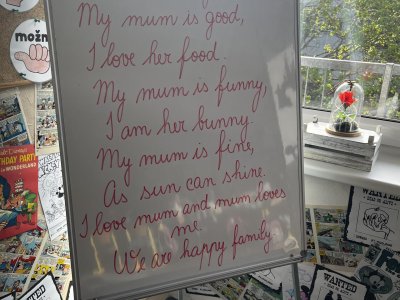 možn
My mum is good,
I love her food.
My mum is funny,
I am her bunny.
My mum is fine,
As sun can shine.
I love mum and mum loves
me.
We are happy family.
BIRTHDAY PARTY
IN WONDERLAND
WANTED
WANTED
WANTED